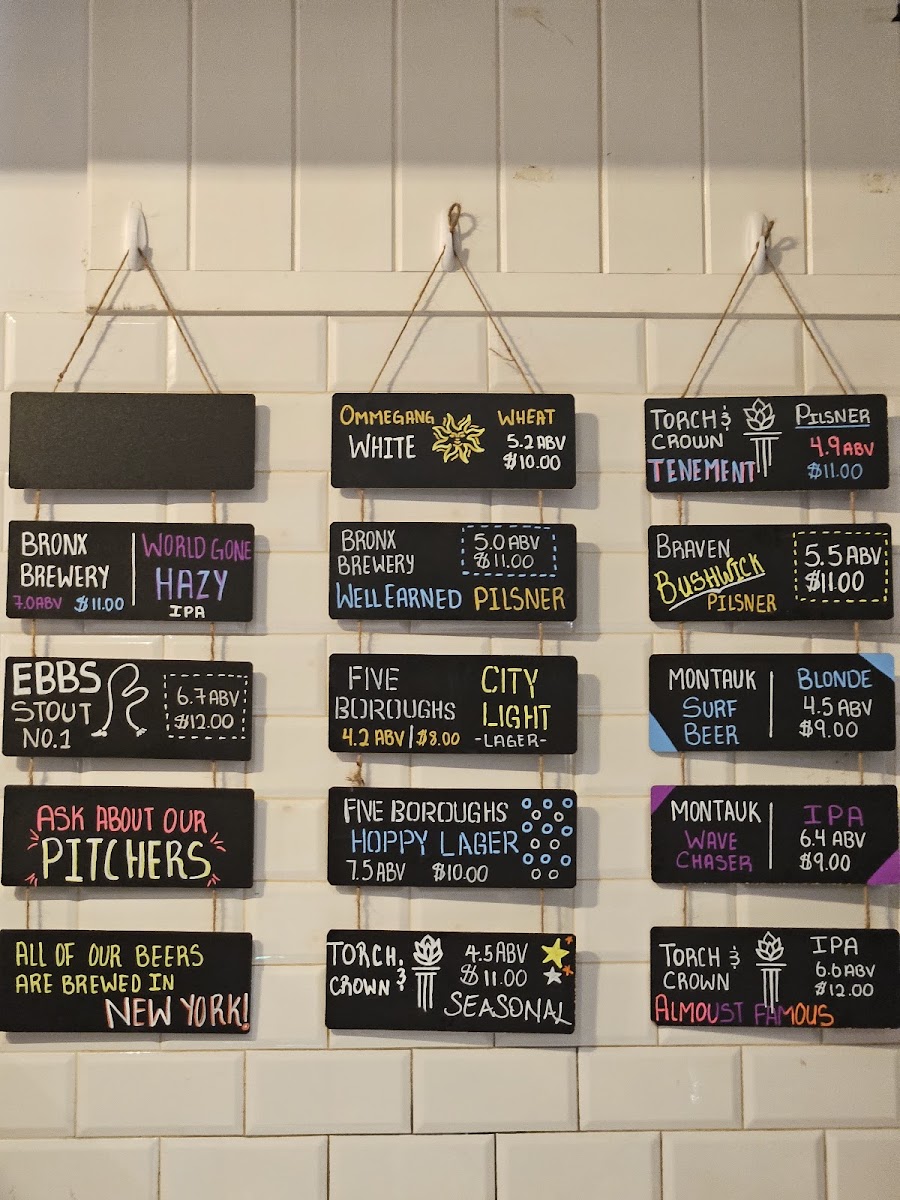 BRONX
BREWERY
7.0ABV $11.00
WORLD GONE
HAZY
IPA
EBBS
STOUT
NO.1
6.7 ABV
$12.00
ASK ABOUT OUR
PITCHERS
ALL OF OUR BEERS
ARE BREWED IN
NEW YORK!
OMMEGANG
WHITE
WHEAT
5.2 ABV
$10.00
BRONX
BREWERY
5.0 ABV
$11.00
WELL EARNED PILSNER
FIVE
BOROUGHS
4.2 ABV | $8.00
CITY
LIGHT
-LAGER-
FIVE BOROUGHS
HOPPY LAGER
7.5 ABV $10.00
TORCH &
CROWN
4.5 ABV
$11.00
SEASONAL
TORCH &
CROWN
TENEMENT
PILSNER
4.9 ABV
$11.00
BRAVEN
BUSHWICK
PILSNER
5.5 ABV
$11.00
MONTAUK
SURF
BEER
BLONDE
4.5 ABV
$9.00
MONTAUK
WAVE
CHASER
IPA
6.4 ABV
$9.00
TORCH &
CROWN
IPA
6.6 ABV
$12.00
ALMOUST FAMOUS